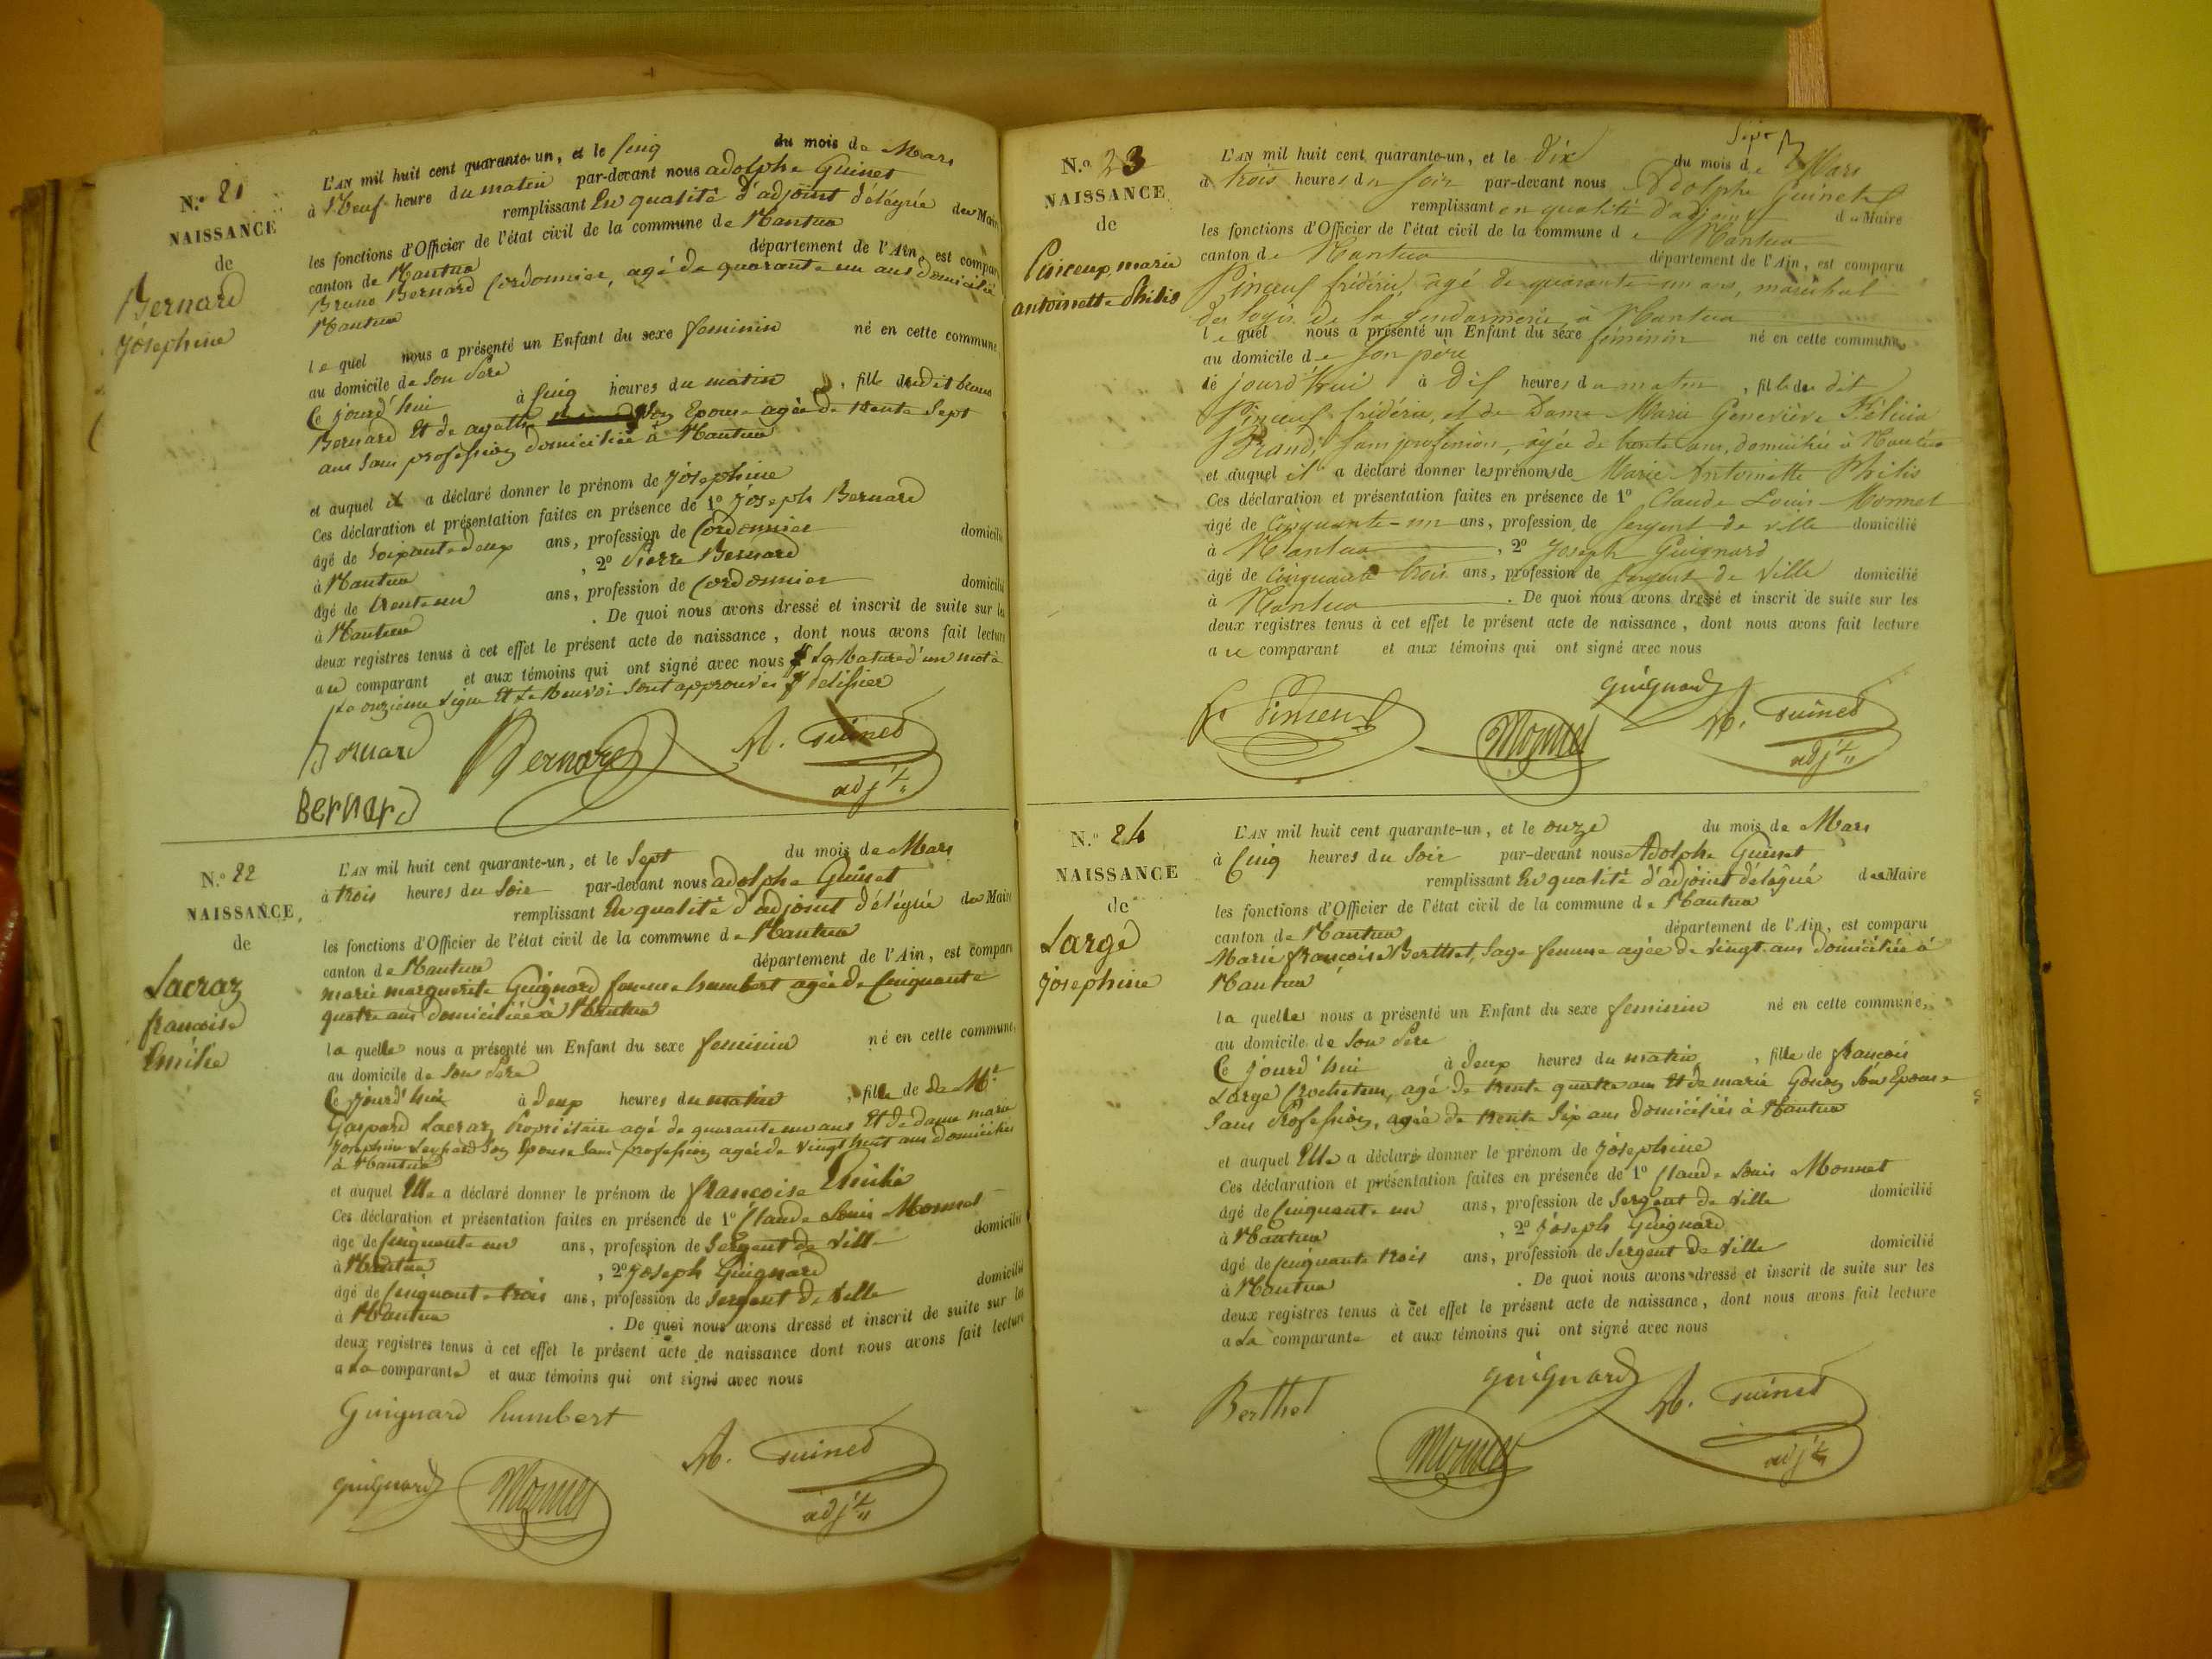 N.º 21
NAISSANCE
de
Bernard
Joséphine
L'AN mil huit cent quarante-un, et le Cinq du mois de Mars
à Neuf heure du matin par-devant nous adolphe Guinet
remplissant En qualité d'adjoint délégué de Maire
les fonctions d'Officier de l'état civil de la commune de Nantua
canton de Nantua département de l'Ain, est comparu
Bruno Bernard Cordonnier, agé de quarante un ans domicilié
Nantua
lequel nous a présenté un Enfant du sexe feminin né en cette commune
au domicile de Son Père
Ce jourd'hui à Cinq heures du matin, fille dudit bruno
Bernard Et de agathe Son Epouse agée de trente Sept
ans Sans profession domiciliée à Nantua
et auquel il a déclaré donner le prénom de Joséphine
Ces déclaration et présentation faites en présence de 1º Joseph Bernard
âgé de Soixante deux ans, profession de Cordonnier domicilié
à Nantua, 2º Pierre Bernard
âgé de trente un ans, profession de Cordonnier domicilié
à Nantua. De quoi nous avons dressé et inscrit de suite sur les
deux registres tenus à cet effet le présent acte de naissance, dont nous avons fait lecture
au comparant et aux témoins qui ont signé avec nous La Rature d'un mot à
La onzième Ligne Et Le Renvoi Sont approuvés
Bernard Bernard A. Guinet
adj.t
Bernard
N.º 22
NAISSANCE
de
Lacraz
françoise
Emilie
L'AN mil huit cent quarante-un, et le Sept du mois de Mars
à trois heures du Soir par-devant nous adolphe Guinet
remplissant En qualité d'adjoint délégué de Maire
les fonctions d'Officier de l'état civil de la commune de Nantua
canton de Nantua département de l'Ain, est comparu
marie marguerite Guignard femme humbert agée de Cinquante
quatre ans domiciliée à Nantua
la quelle nous a présenté un Enfant du sexe feminin né en cette commune,
au domicile de Son Père
Ce jourd'hui à deux heures du matin, fille de de Mr.
Gaspard Lacraz Propriétaire agé de quarante un ans Et de dame marie
Josephine Son Epouse Sans profession agée de vingt huit ans domiciliés
à Nantua
et auquel Elle a déclaré donner le prénom de françoise Emilie
Ces déclaration et présentation faites en présence de 1º Claude Louis Monnet
âgé de Cinquante un ans, profession de Sergent de Ville domicilié
à Nantua, 2º Joseph Guignard
âgé de Cinquante trois ans, profession de Sergent de Ville domicilié
à Nantua. De quoi nous avons dressé et inscrit de suite sur les
deux registres tenus à cet effet le présent acte de naissance dont nous avons fait lecture
a La comparante et aux témoins qui ont signé avec nous
Guignard humbert
guignard Monnet A. Guinet
adj.t
N.º 23
NAISSANCE
de
Pinceux, marie
antoinette Philis
L'AN mil huit cent quarante-un, et le dix du mois de Mars
à trois heures du soir par-devant nous Adolphe Guinet
remplissant en qualité d'adjoint de Maire
les fonctions d'Officier de l'état civil de la commune de Nantua
canton de Nantua département de l'Ain, est comparu
frédéric, âgé de quarante-un ans, maréchal
des logis de la Gendarmerie a Nantua
lequel nous a présenté un Enfant du sexe féminin né en cette commune
au domicile de son père
cé jourd'hui à dix heures du matin, fille du dit
frédéric, et de Dame Marie Geneviève Félicia
Brand, sans profession, âgée de trente ans, domiciliée à Nantua
et auquel il a déclaré donner les prénoms de Marie Antoinette Philis
Ces déclaration et présentation faites en présence de 1º Claude Louis Monnet
âgé de Cinquante-un ans, profession de sergent de ville domicilié
à Nantua, 2º Joseph Guignard
âgé de Cinquante trois ans, profession de sergent de Ville domicilié
à Nantua. De quoi nous avons dressé et inscrit de suite sur les
deux registres tenus à cet effet le présent acte de naissance, dont nous avons fait lecture
au comparant et aux témoins qui ont signé avec nous
guignard
Monnet A. Guinet
adj.t
N.º 24
NAISSANCE
de
Large
Josephine
L'AN mil huit cent quarante-un, et le onze du mois de Mars
à Cinq heures du Soir par-devant nous Adolphe Guinet
remplissant En qualité d'adjoint délégué de Maire
les fonctions d'Officier de l'état civil de la commune de Nantua
canton de Nantua département de l'Ain, est comparu
Marie françoise Berthet, Sage femme agée de vingt ans domiciliée à
Nantua
la quelle nous a présenté un Enfant du sexe feminin né en cette commune,
au domicile de Son Père
Ce jourd'hui à deux heures du matin, fille de françois
Large Crocheteur, agé de trente quatre ans Et de marie Son Epouse
Sans Profession, agée de trente Six ans domiciliés à Nantua
et auquel Elle a déclaré donner le prénom de Josephine
Ces déclaration et présentation faites en présence de 1º Claude Louis Monnet
âgé de Cinquante un ans, profession de Sergent de Ville domicilié
à Nantua, 2º Joseph Guignard
âgé de Cinquante trois ans, profession de Sergent de Ville domicilié
à Nantua. De quoi nous avons dressé et inscrit de suite sur les
deux registres tenus à cet effet le présent acte de naissance, dont nous avons fait lecture
a La comparante et aux témoins qui ont signé avec nous
Berthet guignard A. Guinet
Monnet adj.t